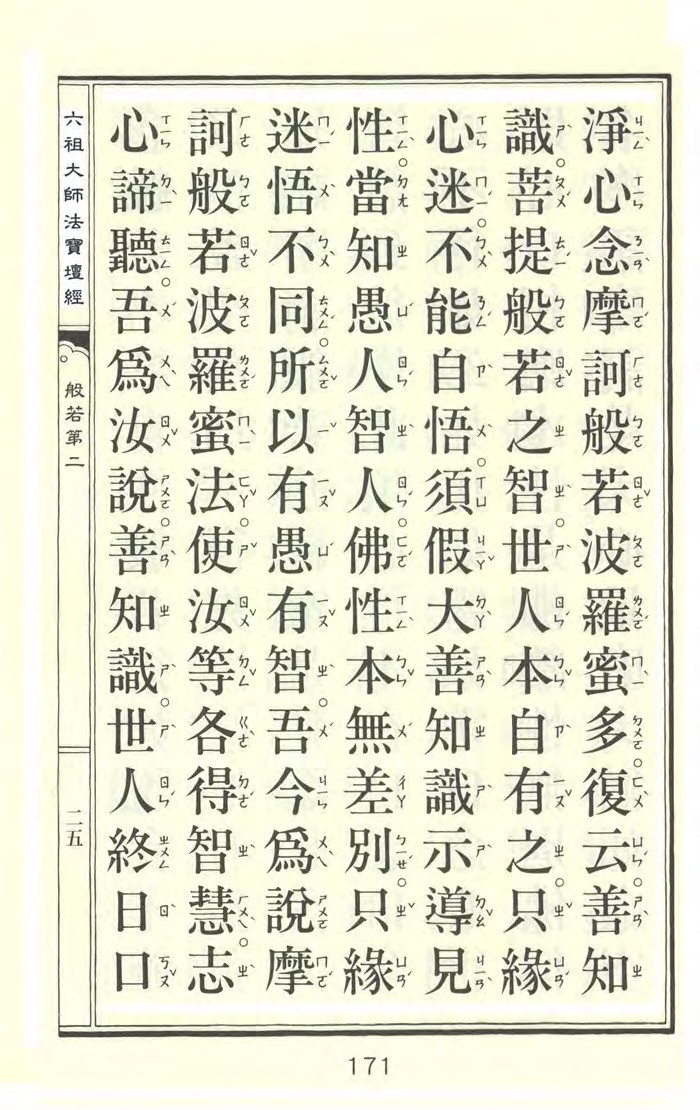 淨心念摩訶般若波羅蜜多。復云。善知
識。菩提般若之智。世人本自有之。只緣
心迷。不能自悟。須假大善知識示導見
性。當知愚人智人。佛性本無差別。只緣
迷悟不同。所以有愚有智。吾今為說摩
訶般若波羅蜜法。使汝等各得智慧。志
心諦聽。吾為汝說。善知識。世人終日口
六祖大師法寶壇經
般若第二
二五
171